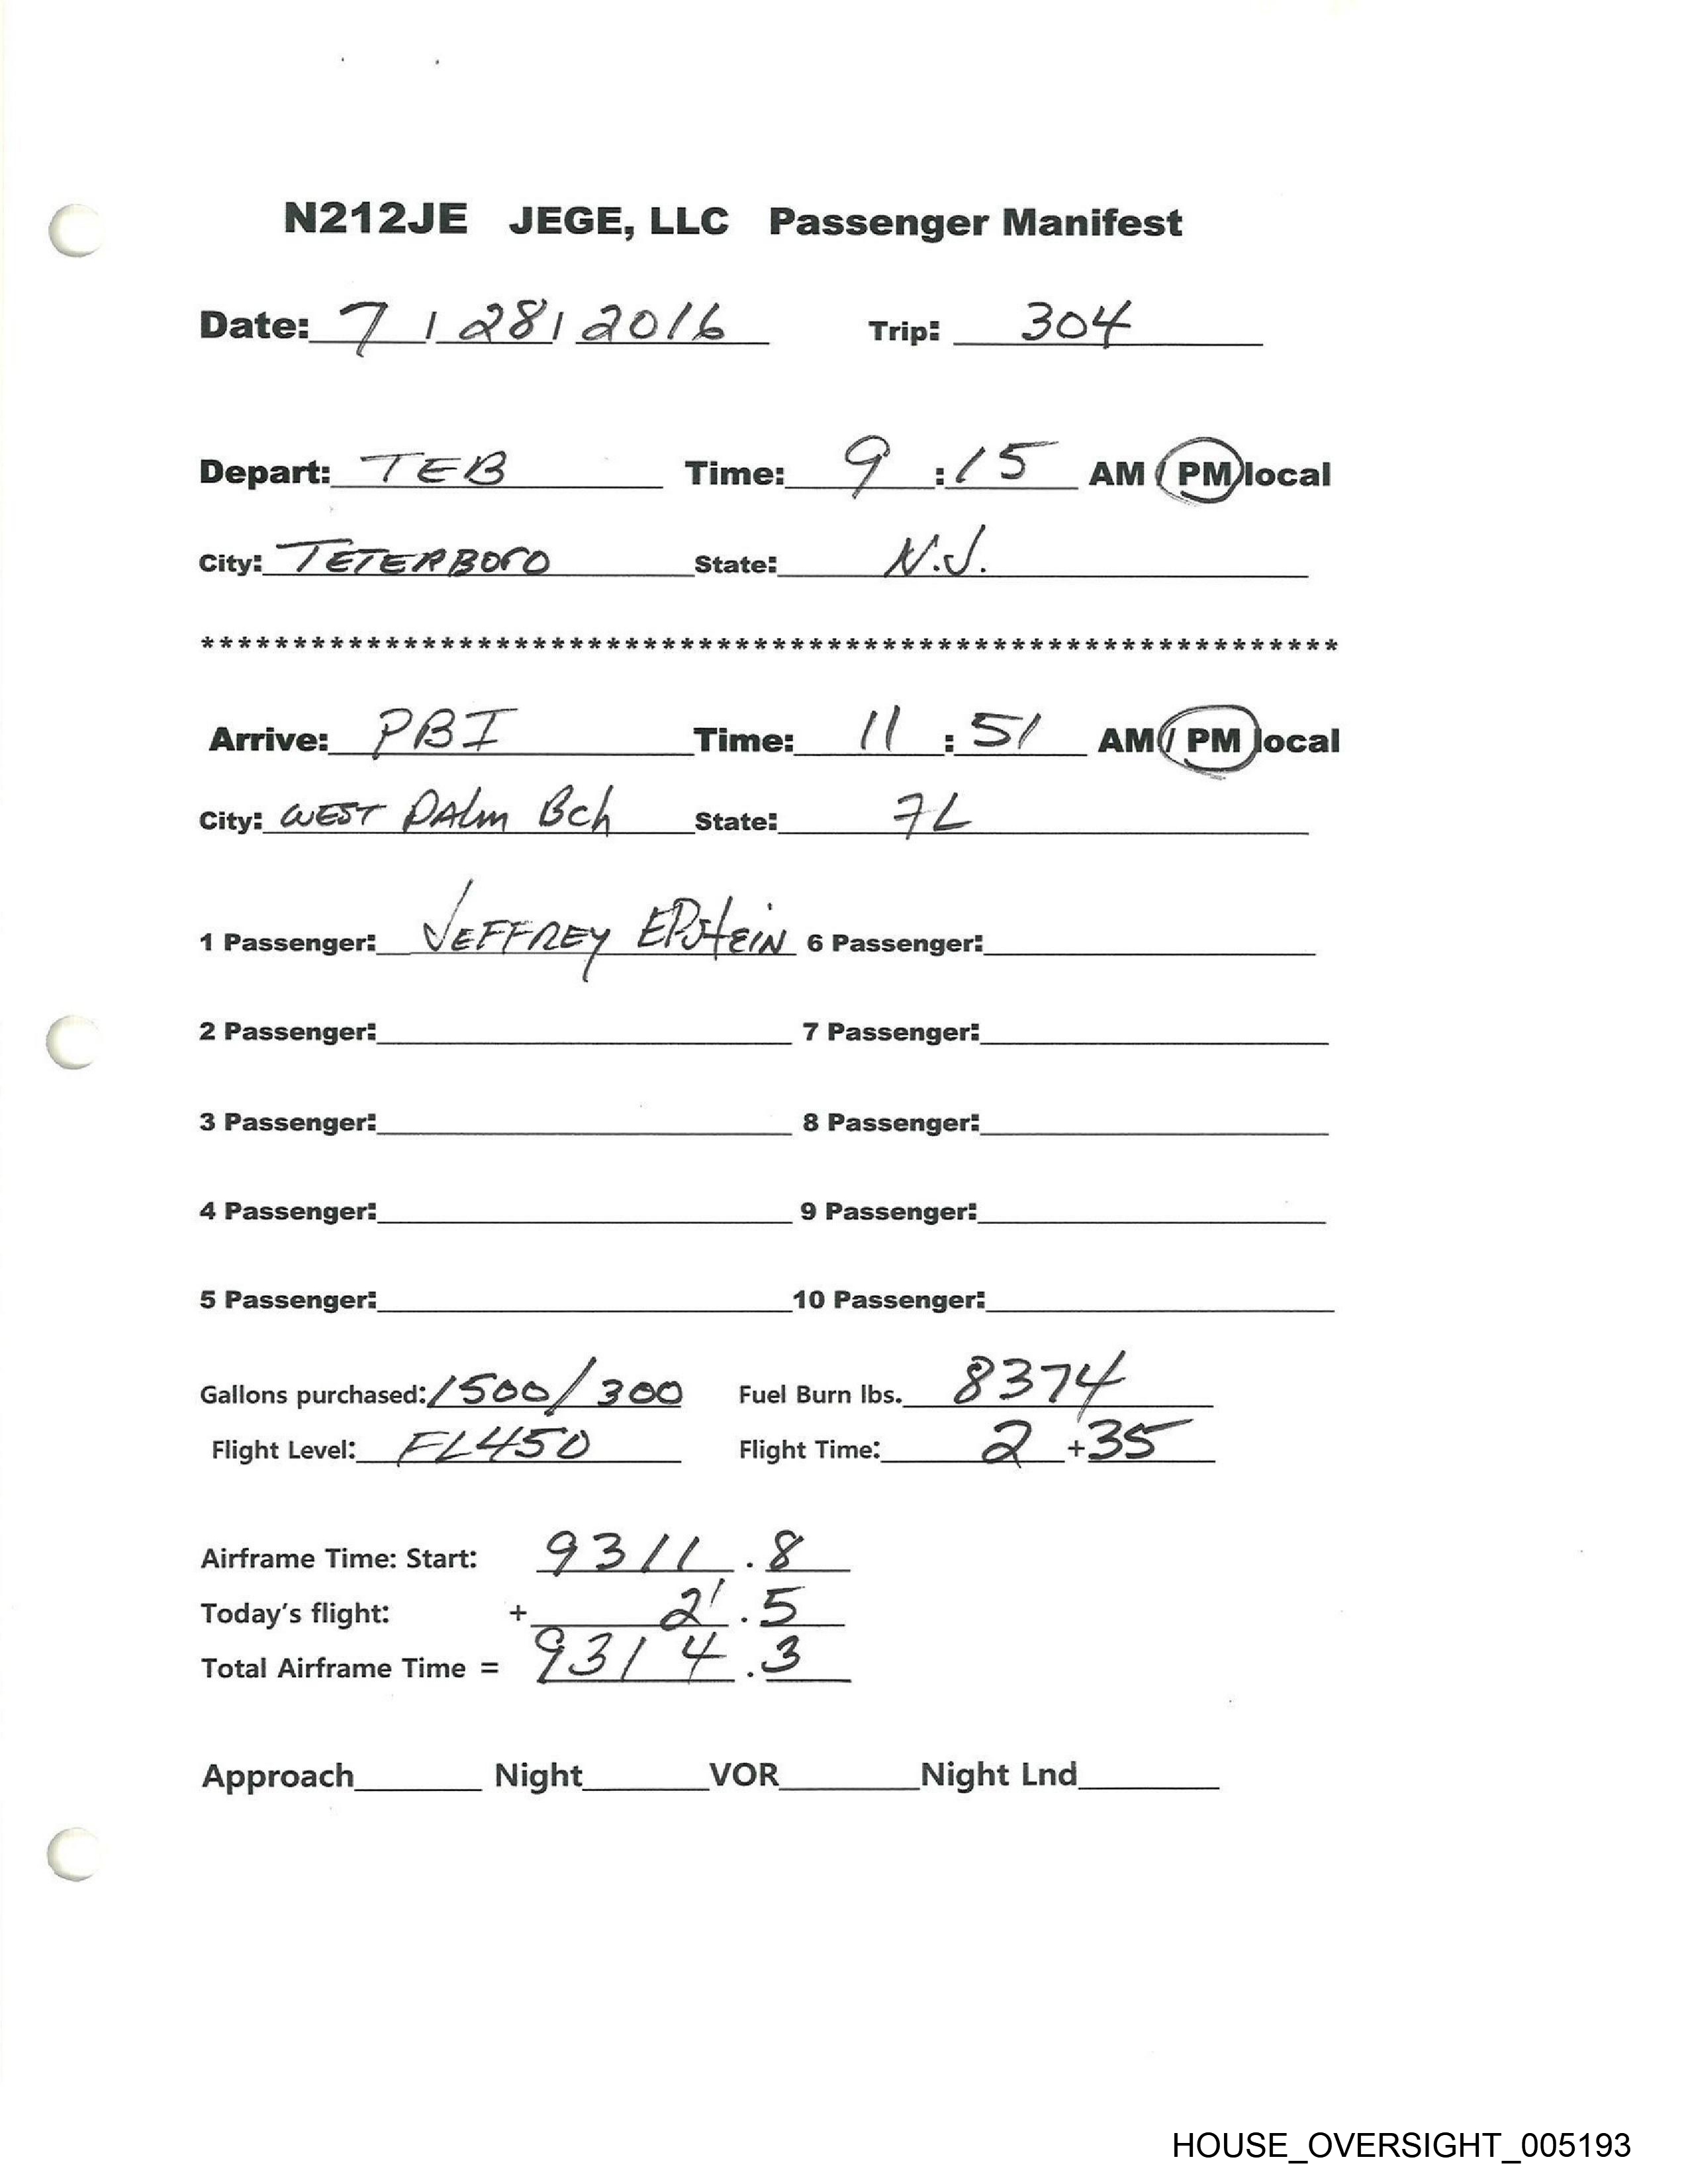 N212JE JEGE, LLC Passenger Manifest
Date: 7 / 28 / 2016 Trip: 304
Depart: TEB Time: 9 : 15 AM / PM local
City: TETERBORO State: N.J.
*************************************************************
Arrive: PBI Time: 11 : 51 AM / PM local
City: WEST PALM Bch State: FL
1 Passenger: JEFFREY EPSTEIN 6 Passenger:
2 Passenger: 7 Passenger:
3 Passenger: 8 Passenger:
4 Passenger: 9 Passenger:
5 Passenger: 10 Passenger:
Gallons purchased: 1500/300 Fuel Burn lbs. 8374
Flight Level: FL450 Flight Time: 2 + 35
Airframe Time: Start: 9311 . 8
Today's flight: + 2 . 5
Total Airframe Time = 9314 . 3
Approach Night VOR Night Lnd
HOUSE_OVERSIGHT_005193